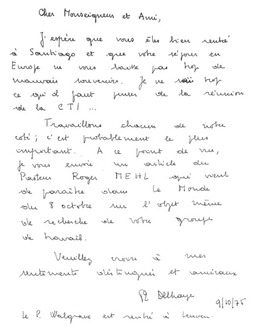 Cher Monseigneur et Ami,
J'espère que vous êtes bien rentré
à Santiago et que votre séjour en
Europe ne vous laisse pas trop de
mauvais souvenirs. Je ne sais trop
ce qu'il faut penser de la réunion
de la CTI ...
Travaillons chacun de notre
coté ; c'est probablement le plus
important. A ce point de vue,
je vous envoie un article du
Pasteur Roger MEHL qui vient
de paraître dans Le Monde
du 8 octobre sur l'objet même
de recherche de votre groupe
de travail.
Veuillez croire à mes
sentiments distingués et amicaux
Ph Delhaye
9/10/75
Le P. Walgrave est rentré à Leuven.